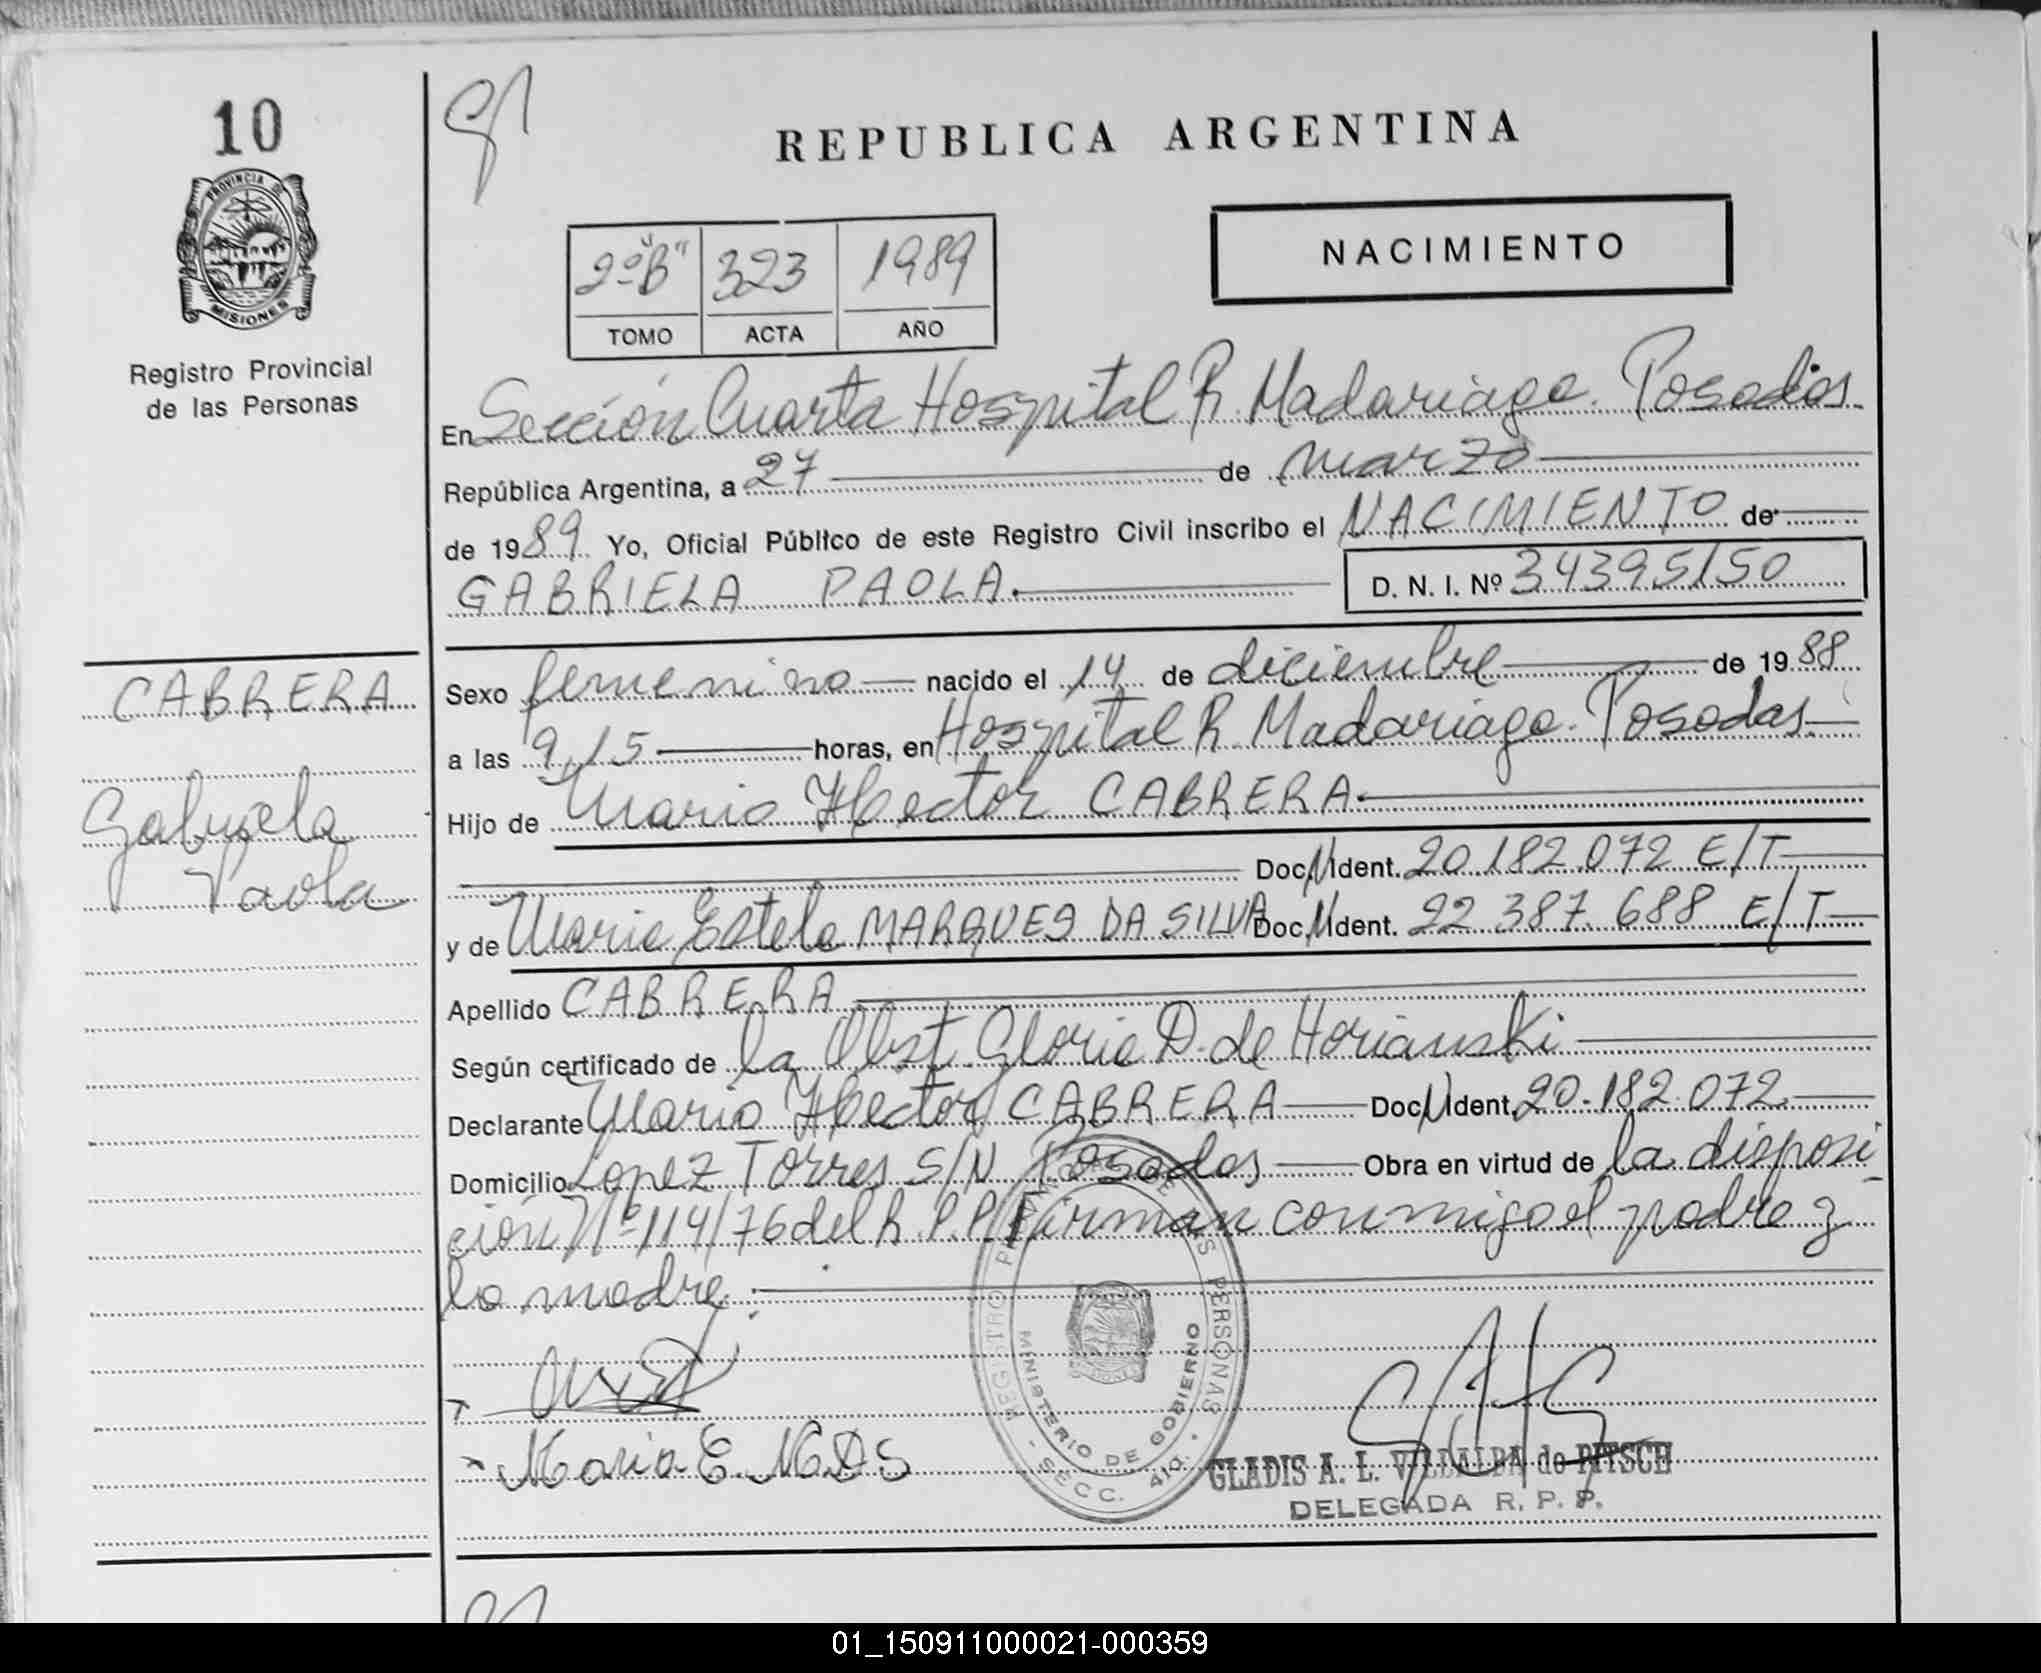 10
PROVINCIA DE
MISIONES
Registro Provincial
de las Personas
REPUBLICA ARGENTINA
NACIMIENTO
2º "B" 323 1989
TOMO ACTA AÑO
En Sección Cuarta Hospital R. Madariaga. Posadas
República Argentina, a 27 de marzo
de 1989 Yo, Oficial Público de este Registro Civil inscribo el NACIMIENTO de
GABRIELA PAOLA.
D. N. I. Nº 34395150
CABRERA
Gabriela
Paola
Sexo femenino nacido el 14 de diciembre de 1988
a las 9,15 horas, en Hospital R. Madariaga. Posadas
Hijo de Mario Hector CABRERA
Doc. N Ident. 20.182.072 E/T
y de Maria Estela MARQUES DA SILVA Doc. N Ident. 22.387.688 E/T
Apellido CABRERA
Según certificado de la Obst. Gloria D. de Horianski
Declarante Mario Hector CABRERA Doc. N Ident. 20.182.072
Domicilio Lopez Torres S/N Posadas Obra en virtud de la disposi
ción Nº 114/76 del R.P.P. Firman conmigo el padre y
la madre.
Maria E. M D S
REGISTRO PROVINCIAL DE LAS PERSONAS
MINISTERIO DE GOBIERNO
- SECC. 4ta. -
GLADIS A. L. VILLALBA de PITSCH
DELEGADA R. P. P.
01_150911000021-000359